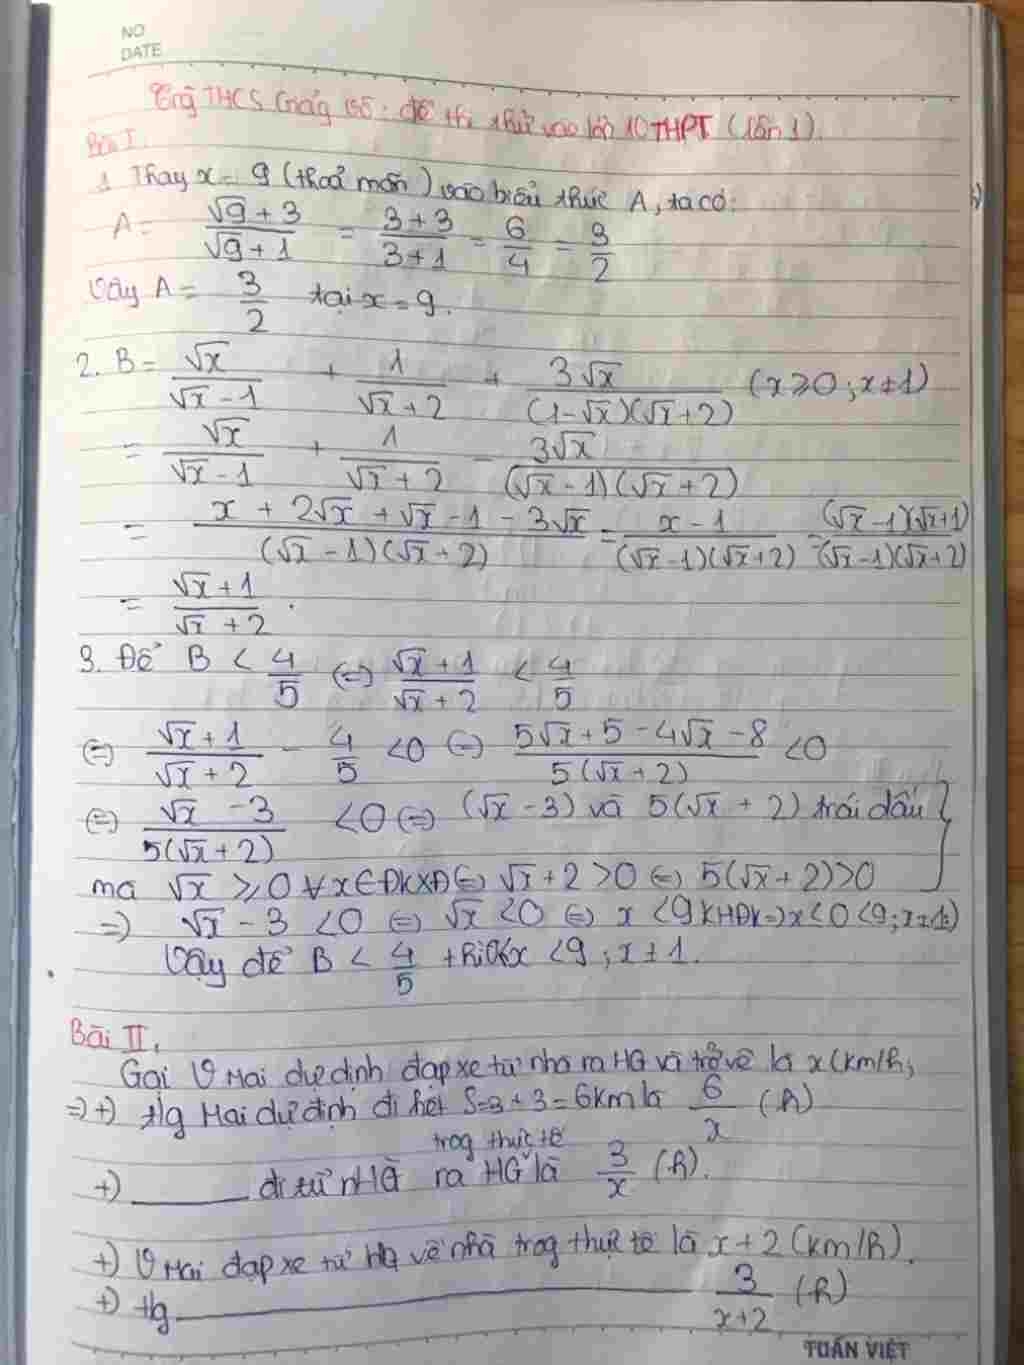 NO
DATE
Trg THCS Giảg Võ: đề thi thử vào lớp 10 THPT (lần 1).
Bài I.
1 Thay x = 9 (thoả mãn) vào biểu thức A, ta có:
A = (√9 + 3)/(√9 + 1) = (3 + 3)/(3 + 1) = 6/4 = 3/2
Vậy A = 3/2 tại x = 9.
2. B = √x/(√x - 1) + 1/(√x + 2) + 3√x/((1 - √x)(√x + 2)) (x ≥ 0; x ≠ 1)
= √x/(√x - 1) + 1/(√x + 2) - 3√x/((√x - 1)(√x + 2))
= (x + 2√x + √x - 1 - 3√x)/((√x - 1)(√x + 2)) = (x - 1)/((√x - 1)(√x + 2)) = ((√x - 1)(√x + 1))/((√x - 1)(√x + 2))
= (√x + 1)/(√x + 2).
3. Để B < 4/5 (=) (√x + 1)/(√x + 2) < 4/5
(=) (√x + 1)/(√x + 2) - 4/5 < 0 (=) (5√x + 5 - 4√x - 8)/(5(√x + 2)) < 0
(=) (√x - 3)/(5(√x + 2)) < 0 (=) (√x - 3) và 5(√x + 2) trái dấu
mà √x ≥ 0 ∀x ∈ ĐKXĐ (=) √x + 2 > 0 (=) 5(√x + 2) > 0
=) √x - 3 < 0 (=) √x < 0 (=) x < 9 KHĐK =) x < 0 < 9; x ≠ 1)
Vậy để B < 4/5 thì 0 ≤ x < 9; x ≠ 1.
Bài II.
Gọi V Mai dự định đạp xe từ nhà ra HG và trở về là x (km/h;
=) +) tg Mai dự định đi hết S = 3 + 3 = 6km là 6/x (h)
trog thực tế
+) ______ đi từ nhà ra HG là 3/x (h).
+) V Mai đạp xe từ HG về nhà trog thực tế là x + 2 (km/h).
+) tg ______ 3/(x+2) (h)
TUẤN VIỆT